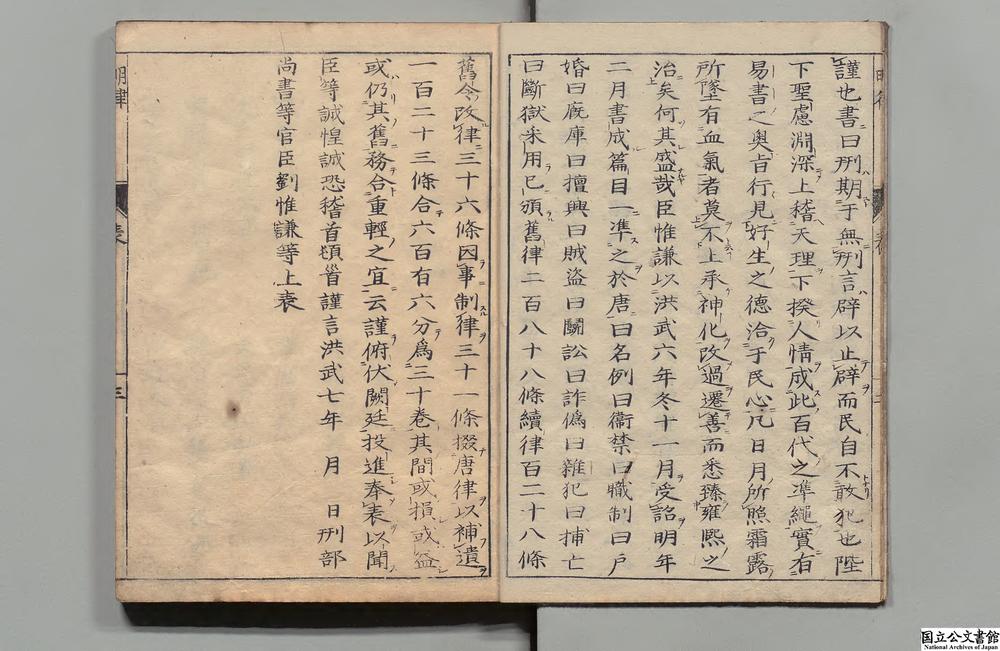 謹也書曰刑期于無刑言辟以止辟而民自不敢犯也陛
下聖慮淵深上稽天理下揆人情成此百代之準繩實有
易書之奥旨行見好生之德洽于民心凡日月所照霜露
所墜有血氣者莫不上承神化改過遷善而悉臻雍熙之
治矣何其盛哉臣惟謙以洪武六年冬十一月受詔明年
二月書成篇目一準之於唐曰名例曰衞禁曰職制曰戶
婚曰廐庫曰擅興曰賊盗曰鬬訟曰詐僞曰雜犯曰捕亡
曰斷獄采用已頒舊律二百八十八條續律百二十八條
舊令改律三十六條因事制律三十一條掇唐律以補遺
一百二十三條合六百有六分爲三十卷其間或損或益
或仍其舊務合重輕之宜云謹俯伏闕廷投進奉表以聞
臣等誠惶誠恐稽首頓首謹言洪武七年 月 日刑部
尚書等官臣劉惟謙等上表
明律
表
三
国立公文書館
National Archives of Japan